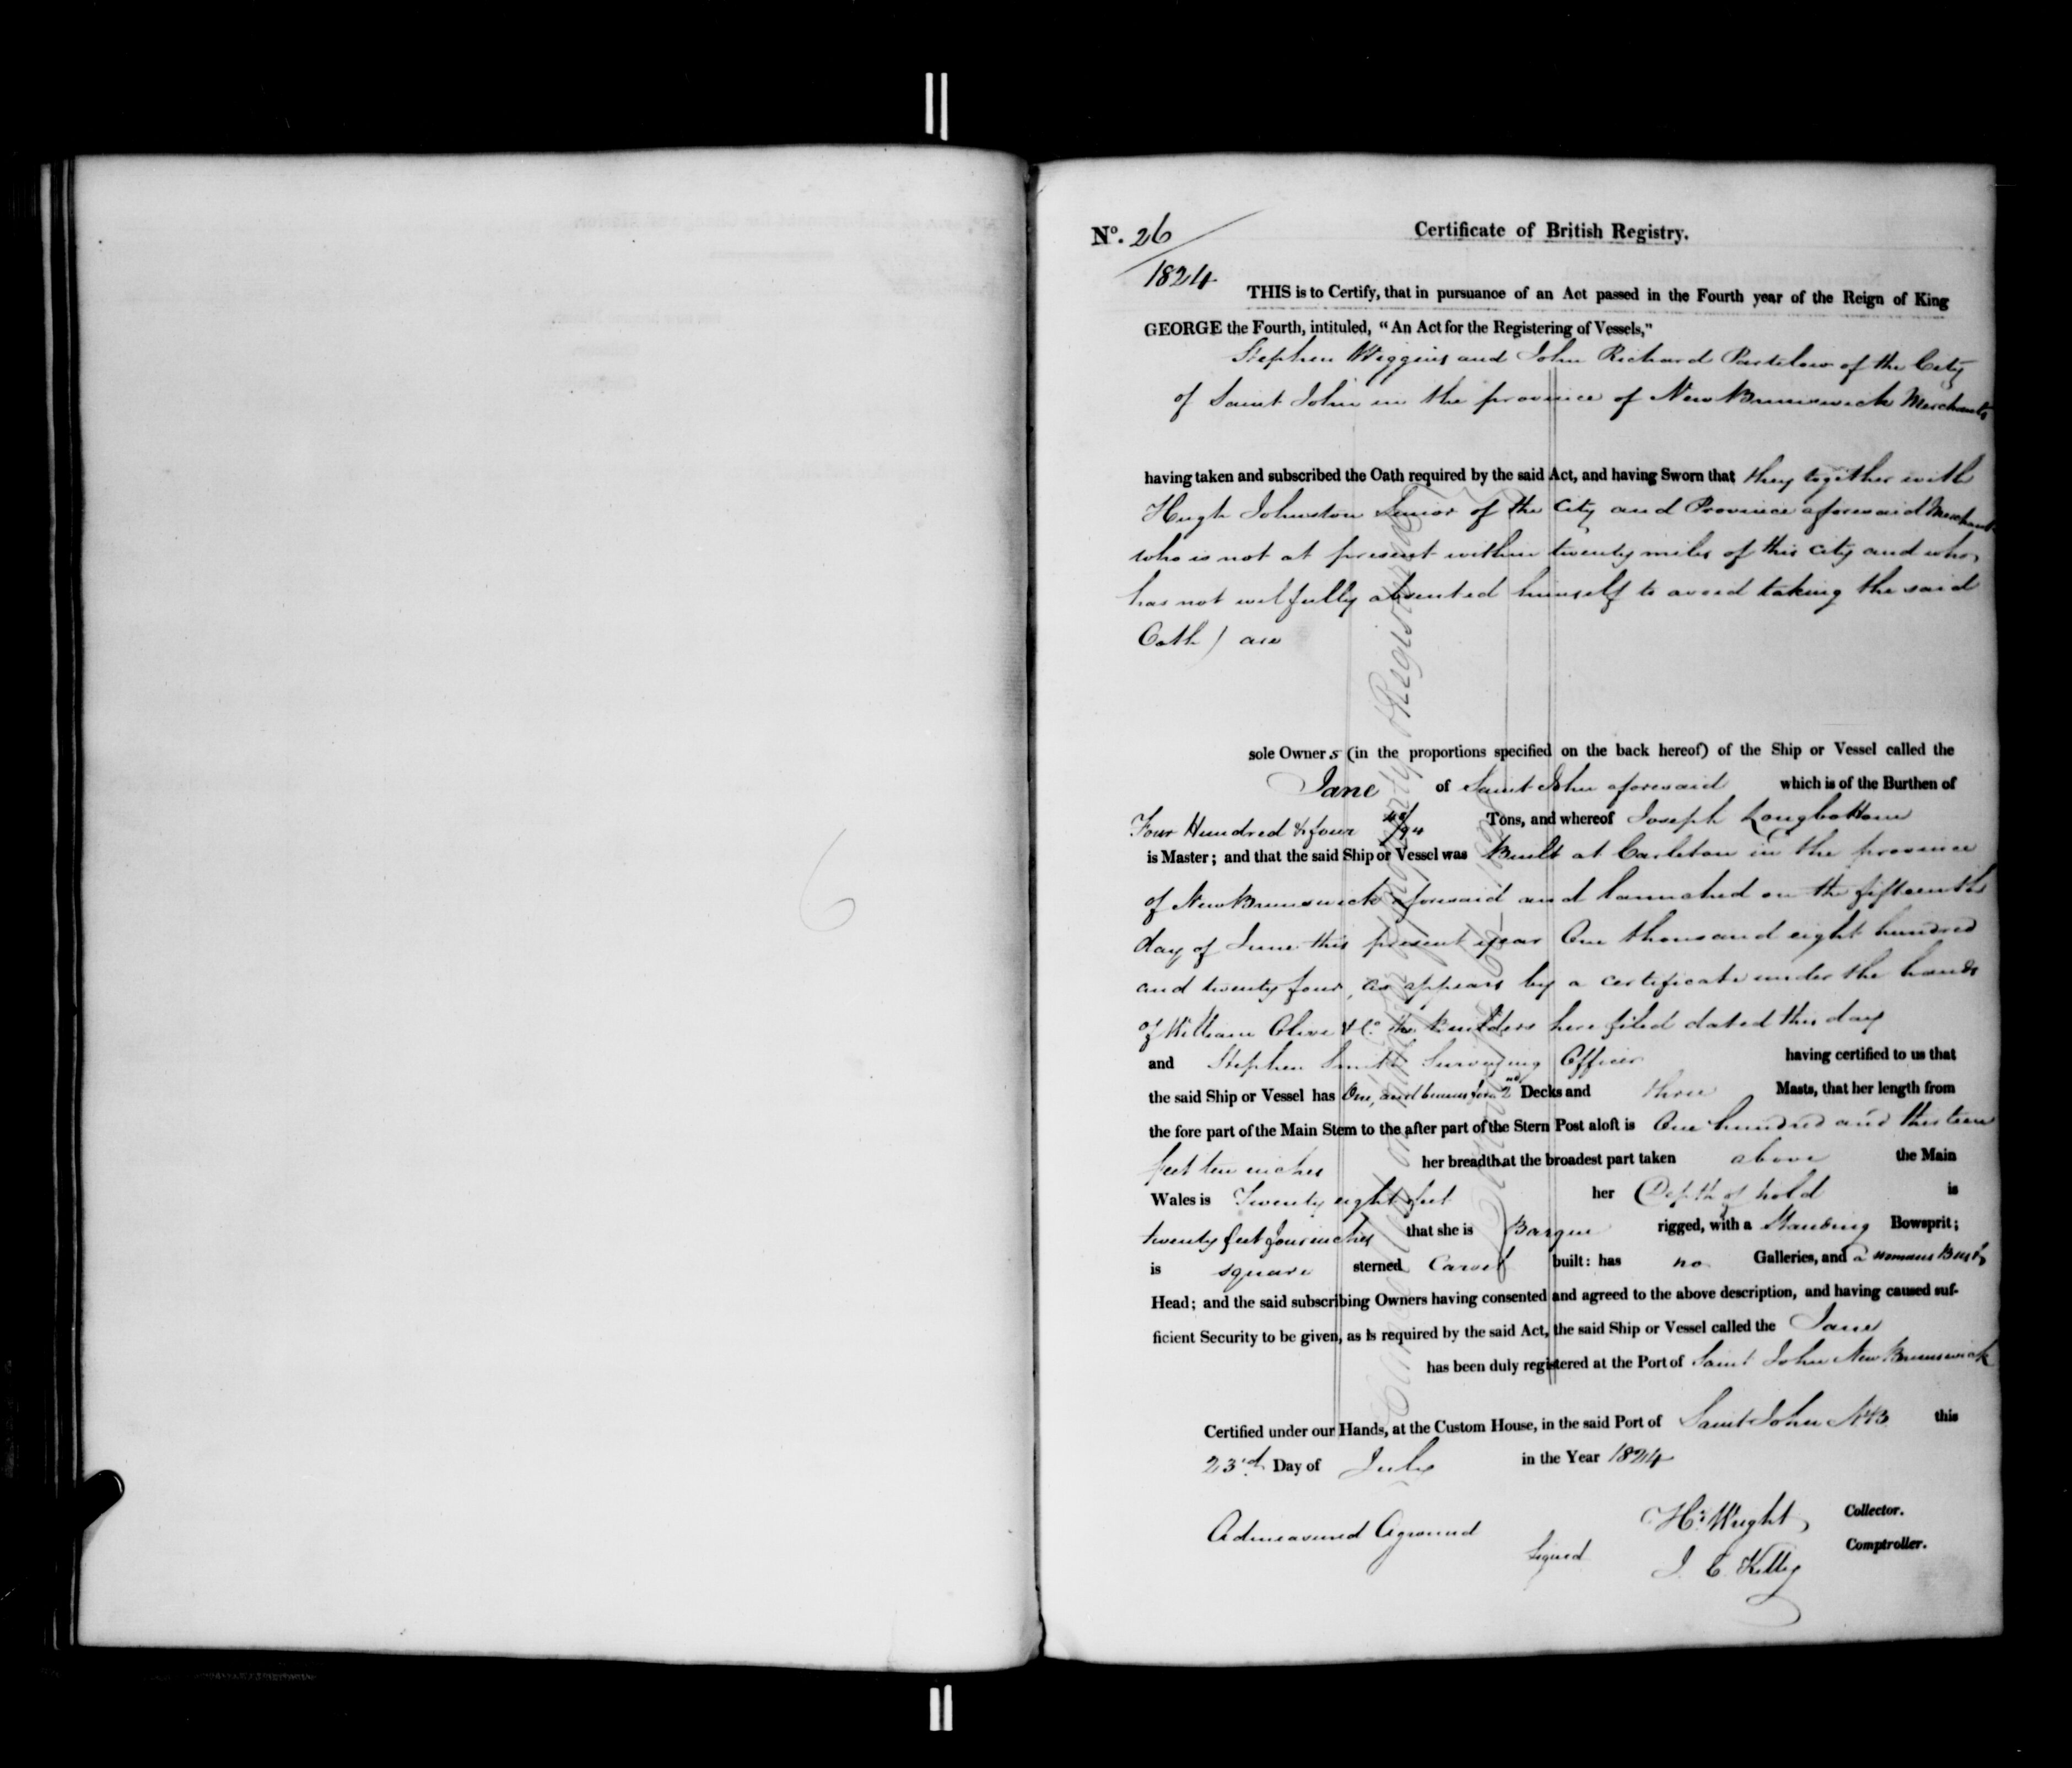 Nº. 26
1824
Certificate of British Registry.
THIS is to Certify, that in pursuance of an Act passed in the Fourth year of the Reign of King
GEORGE the Fourth, intituled, "An Act for the Registering of Vessels,"
Stephen Wiggins and John Richard Partelow of the City
of Saint John in the province of New Brunswick Merchants
having taken and subscribed the Oath required by the said Act, and having Sworn that they together with
Hugh Johnston Junior of the City and Province aforesaid Merchant
who is not at present within twenty miles of this city and who
has not wilfully absented himself to avoid taking the said
Oath) are
sole Owners (in the proportions specified on the back hereof) of the Ship or Vessel called the
Jane of Saint John aforesaid which is of the Burthen of
Four Hundred & four /94 Tons, and whereof Joseph Longbottom
is Master; and that the said Ship or Vessel was Built at Carleton in the province
of New Brunswick aforesaid and launched on the fifteenth
day of June this present year One thousand eight hundred
and twenty four, as appears by a certificate under the hands
of William Olive & Co. the Builders here filed dated this day
and Stephen Smith Surveying Officer having certified to us that
the said Ship or Vessel has One, and beams for a 2nd Decks and three Masts, that her length from
the fore part of the Main Stem to the after part of the Stern Post aloft is One hundred and thirteen
feet ten inches her breadth at the broadest part taken above the Main
Wales is Twenty eight feet her Depth of hold is
twenty feet four inches that she is Barque rigged, with a Standing Bowsprit;
is square sterned Carvel built: has no Galleries, and a womans Bust
Head; and the said subscribing Owners having consented and agreed to the above description, and having caused suf-
ficient Security to be given, as is required by the said Act, the said Ship or Vessel called the Jane
has been duly registered at the Port of Saint John New Brunswick
Certified under our Hands, at the Custom House, in the said Port of Saint John NB this
23rd Day of July in the Year 1824
Admeasured Aground
Signed
H: Wright Collector.
J. C. Kelly Comptroller.
6